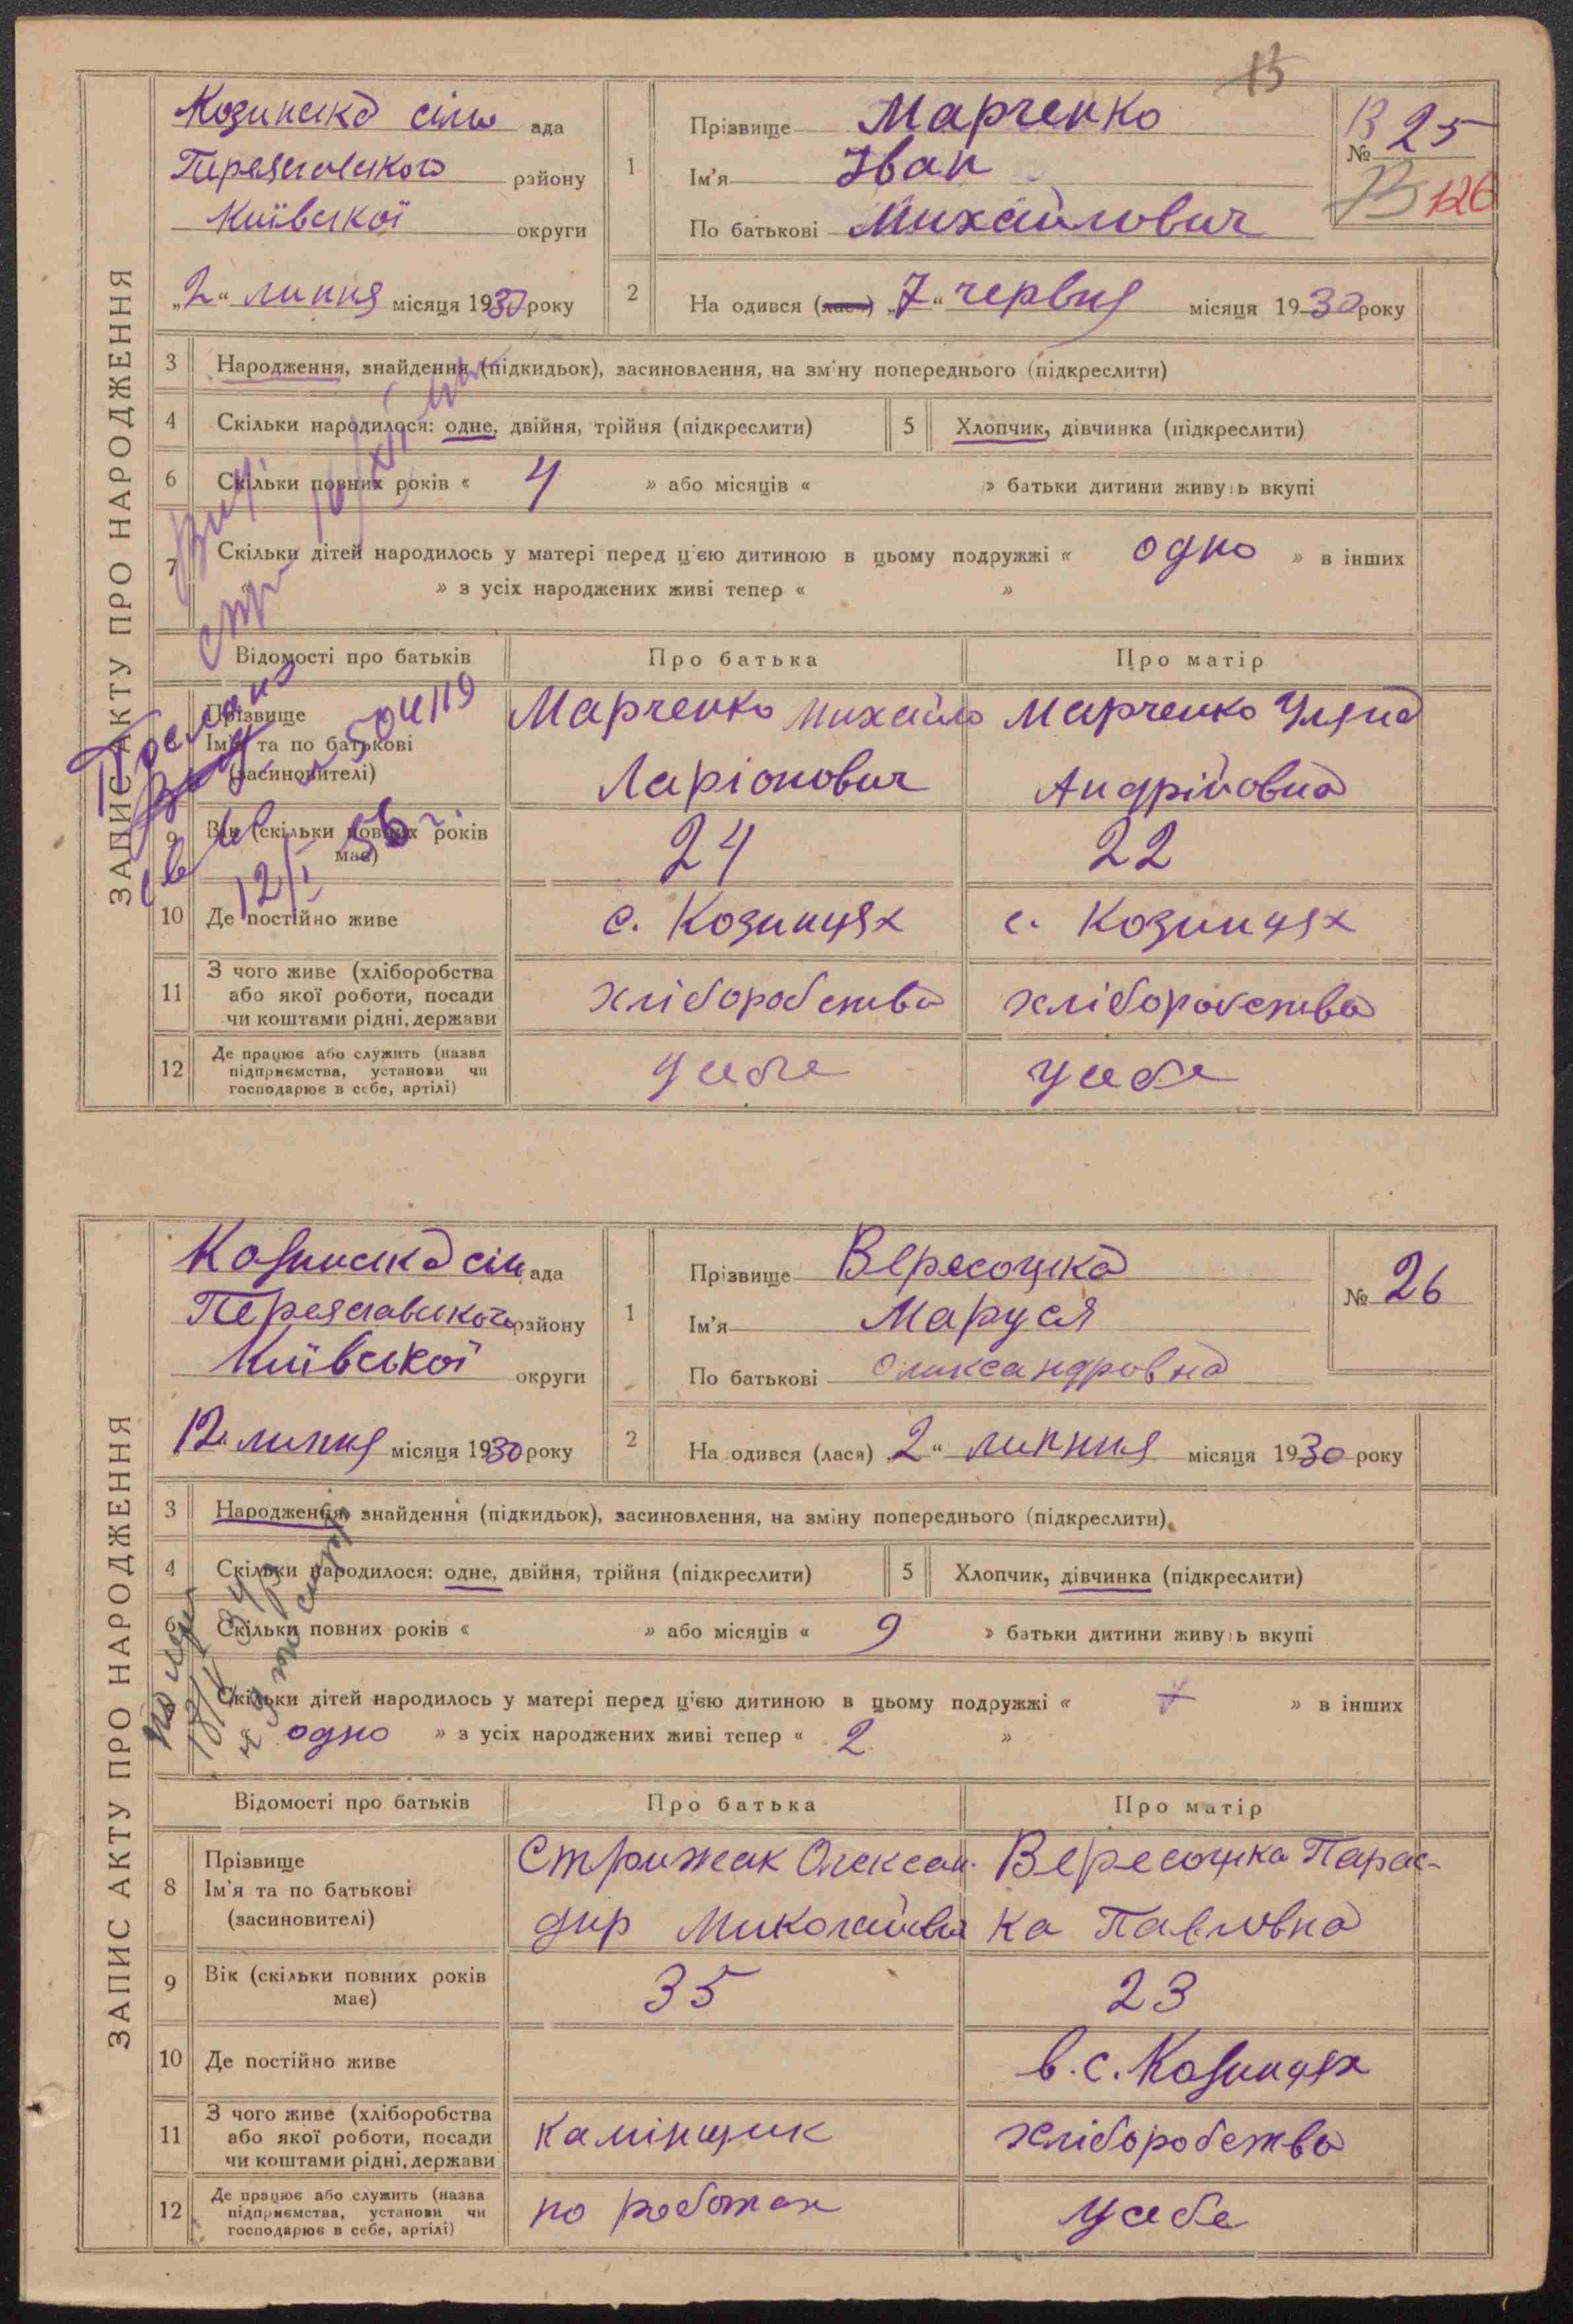 15
ЗАПИС АКТУ ПРО НАРОДЖЕННЯ
Козинська сіль ада
Переяславського району
Київської округи
„2“ липня місяця 1930 року
1
Прізвище Марченко
Ім'я Іван
По батькові Михайлович
№ 25
В 126
2 На одився (лася) „7“ червня місяця 1930 року
3 Народження, знайдення (підкидьок), засиновлення, на зміну попереднього (підкреслити)
4 Скільки народилося: одне, двійня, трійня (підкреслити)
5 Хлопчик, дівчинка (підкреслити)
6 Скільки повних років « 4 » або місяців « » батьки дитини живуть вкупі
7 Скільки дітей народилось у матері перед ц'єю дитиною в цьому подружжі « одно » в інших
» з усіх народжених живі тепер « »
Відомості про батьків Про батька Про матір
Прізвище
Ім'я та по батькові
(засиновителі)
Марченко Михайло
Ларіонович
Марченко Уляна
Андрійовна
9 Вік (скільки повних років має) 24 22
12/I 56
10 Де постійно живе с. Козинцях с. Козинцях
11 З чого живе (хліборобства
або якої роботи, посади
чи коштами рідні, держави
хліборобства хліборобства
12 Де працює або служить (назва
підприємства, установи чи
господарює в себе, артілі)
у себе у себе
ЗАПИС АКТУ ПРО НАРОДЖЕННЯ
Козинська сіль ада
Переяславського району
Київської округи
„12“ липня місяця 1930 року
1
Прізвище Вересоцька
Ім'я Маруся
По батькові Олександровна
№ 26
2 На одився (лася) „2“ липння місяця 1930 року
3 Народження, знайдення (підкидьок), засиновлення, на зміну попереднього (підкреслити)
4 Скільки народилося: одне, двійня, трійня (підкреслити)
5 Хлопчик, дівчинка (підкреслити)
6 Скільки повних років « » або місяців « 9 » батьки дитини живуть вкупі
Скільки дітей народилось у матері перед ц'єю дитиною в цьому подружжі « » в інших
« одно » з усіх народжених живі тепер « 2 »
Відомості про батьків Про батька Про матір
8
Прізвище
Ім'я та по батькові
(засиновителі)
Стрижак Олексан-
дир Миколайович
Вересоцька Парас-
ка Павловна
9 Вік (скільки повних років має) 35 23
10 Де постійно живе в. с. Козинцях
11 З чого живе (хліборобства
або якої роботи, посади
чи коштами рідні, держави
камінщик хліборобства
12 Де працює або служить (назва
підприємства, установи чи
господарює в себе, артілі)
по роботах у себе